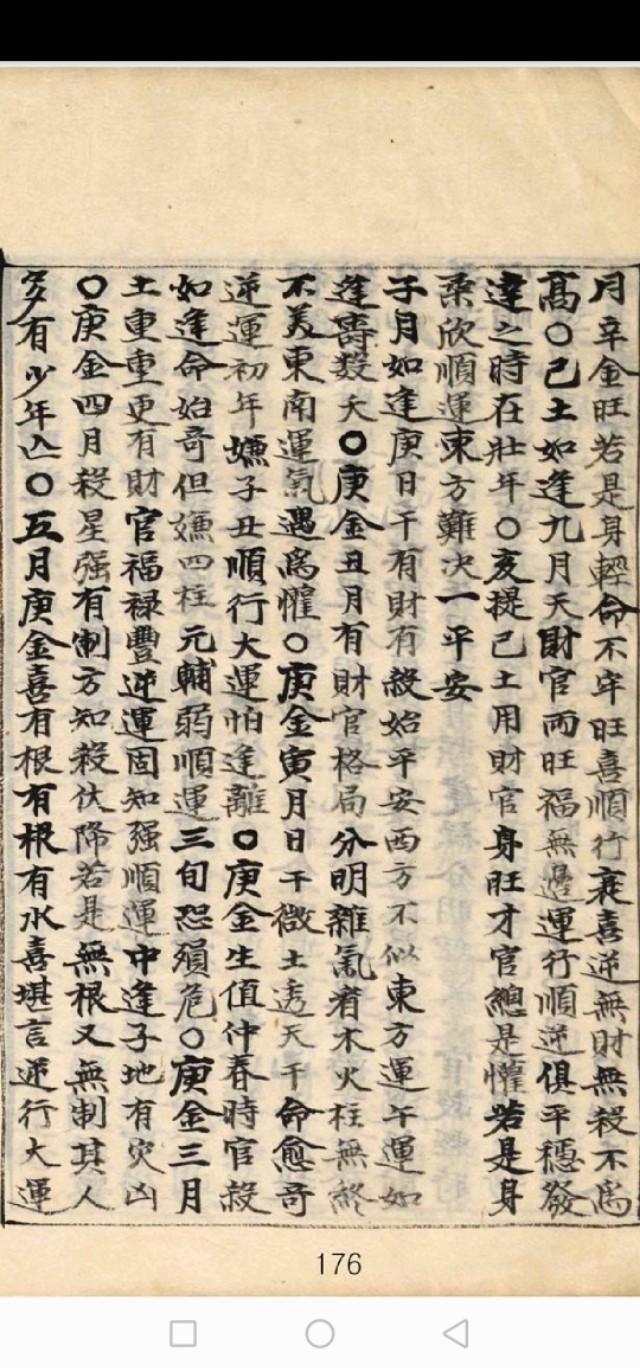 月辛金旺若是身輕命不牢旺喜順行衰喜逆無財無殺不爲
高〇己土如逢九月天財官兩旺福無邊運行順逆俱平穩發
達之時在壯年〇亥提己土用財官身旺才官總是懽若是身
柔欣順運東方難決一平安
子月如逢庚日干有財有殺始平安西方不似東方運午運如
逢壽数夭〇庚金丑月有財官格局分明雜氣看木火柱無終
不美東南運氣遇爲懽〇庚金寅月日干微土透天干命愈奇
逆運初年嫌子丑順行大運怕逢離〇庚金生值仲春時官殺
如逢命始奇但嫌四柱元輔弱順運三旬恐殞危〇庚金三月
土重重更有財官福禄豐逆運固知强順運中逢子地有灾凶
〇庚金四月殺星强有制方知殺伏降若是無根又無制其人
多有少年亾〇五月庚金喜有根有根有水喜堪言逆行大運
176